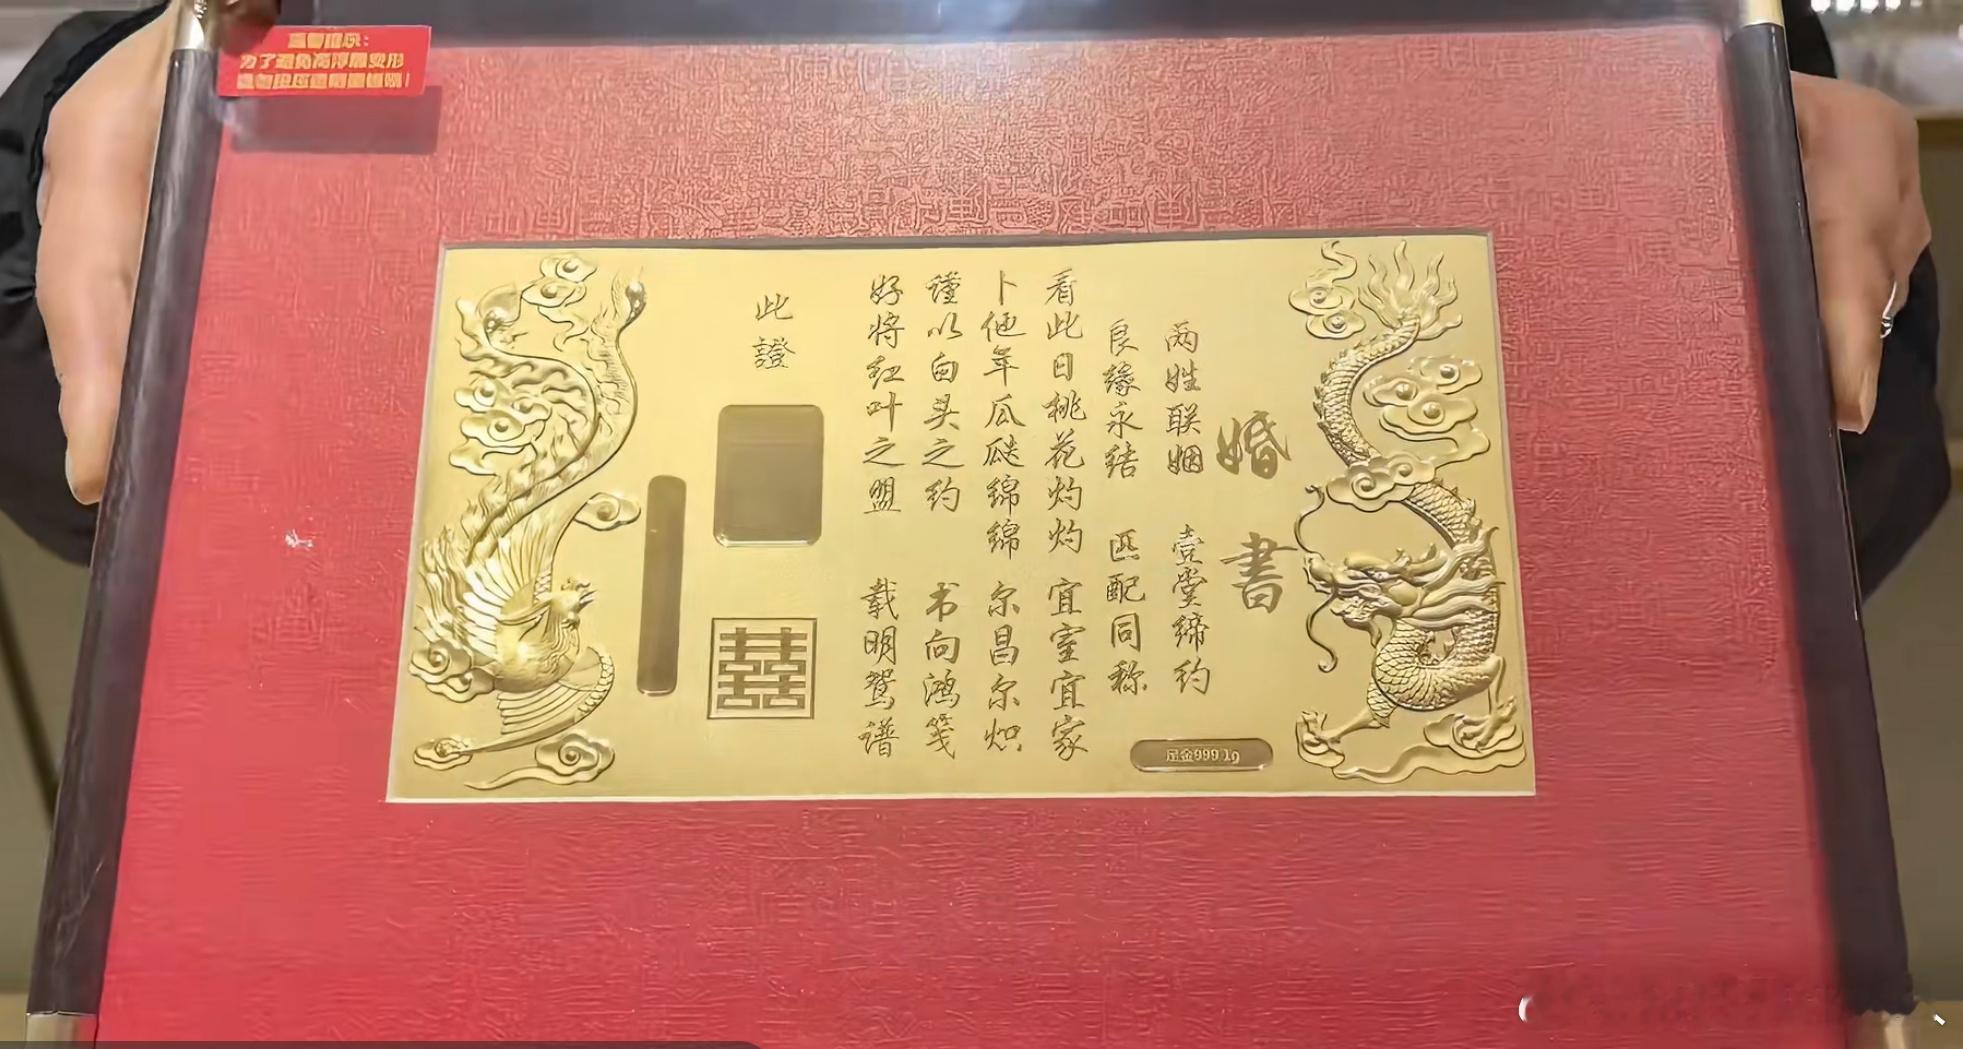 婚書
两姓联姻 壹堂缔约
良缘永结 匹配同称
看此日桃花灼灼 宜室宜家
卜他年瓜瓞绵绵 尔昌尔炽
谨以白头之约 书向鸿笺
好将红叶之盟 载明鸳谱
此證
囍
足金999 1g
为了避免高浮雕变形